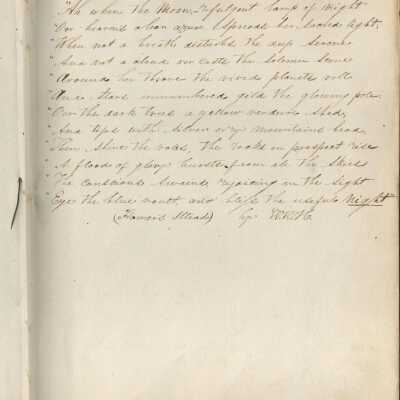 "As when the Moon, refulgent lamp of night
"O'er heavens clear azure spreads her sacred light,
"When not a breath disturbs the deep serene
"And not a cloud o'er casts the solemn scene
"Around her throne the vivid planets roll
"And stars unnumbered gild the glowing pole.
"O'er the dark trees a yellow verdure shed,
"And tips with silver every mountains head,
Then shine the vales, the rocks in prospect rise
"A flood of glory bursts from all the skies
"The conscious swains rejoicing in the sight
"Eye the blue vault, and bless the useful Night"
(Homers Iliad) by